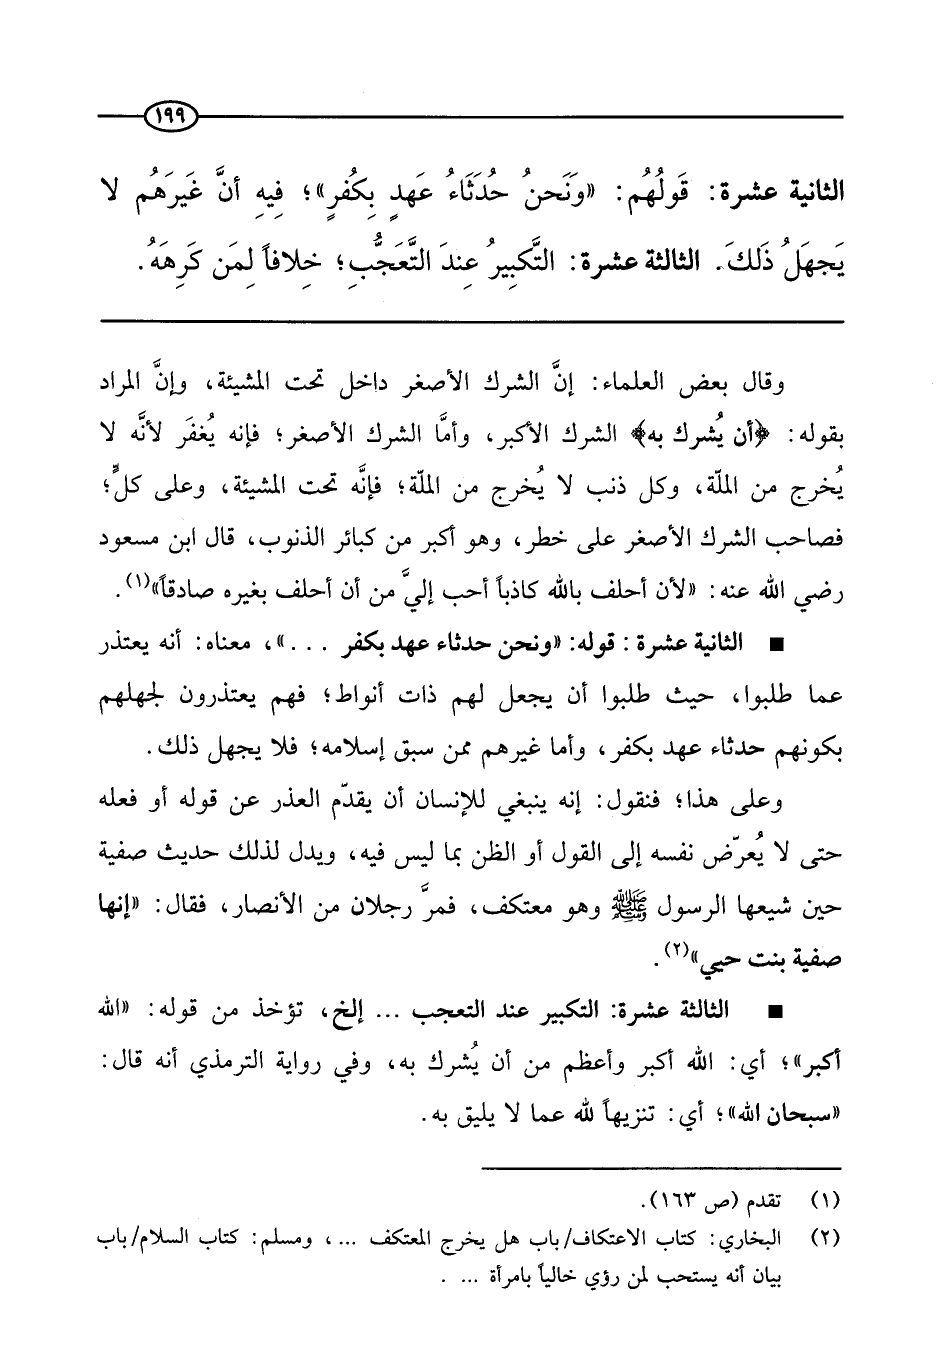 ١٩٩
الثانية عشرة: قَولُهُم: «وَنَحنُ حُدَثَاءُ عَهدٍ بِكُفرٍ»؛ فِيهِ أنَّ غَيرَهُم لا
يَجهَلُ ذَلكَ. الثالثة عشرة: التَّكبِيرُ عِندَ التَّعَجُّبِ؛ خِلافاً لِمَن كَرِهَهُ.
وقال بعض العلماء: إنَّ الشرك الأصغر داخل تحت المشيئة، وإنَّ المراد
بقوله: ﴿أن يُشرك به﴾ الشرك الأكبر، وأمَّا الشرك الأصغر؛ فإنه يُغفَر لأنَّه لا
يُخرج من الملّة، وكل ذنب لا يُخرج من الملّة؛ فإنَّه تحت المشيئة، وعلى كلٍّ؛
فصاحب الشرك الأصغر على خطر، وهو أكبر من كبائر الذنوب، قال ابن مسعود
رضي الله عنه: «لأن أحلف بالله كاذباً أحب إليَّ من أن أحلف بغيره صادقاً»(١).
■ الثانية عشرة: قوله: «ونحن حدثاء عهد بكفر ...»، معناه: أنه يعتذر
عما طلبوا، حيث طلبوا أن يجعل لهم ذات أنواط؛ فهم يعتذرون لجهلهم
بكونهم حدثاء عهد بكفر، وأما غيرهم ممن سبق إسلامه؛ فلا يجهل ذلك.
وعلى هذا؛ فنقول: إنه ينبغي للإنسان أن يقدّم العذر عن قوله أو فعله
حتى لا يُعرّض نفسه إلى القول أو الظن بما ليس فيه، ويدل لذلك حديث صفية
حين شيعها الرسول ﷺ وهو معتكف، فمرَّ رجلان من الأنصار، فقال: «إنها
صفية بنت حيي»(٢).
■ الثالثة عشرة: التكبير عند التعجب ... إلخ، تؤخذ من قوله: «الله
أكبر»؛ أي: الله أكبر وأعظم من أن يُشرك به، وفي رواية الترمذي أنه قال:
«سبحان الله»؛ أي: تنزيهاً لله عما لا يليق به.
(١) تقدم (ص ١٦٣).
(٢) البخاري: كتاب الاعتكاف/باب هل يخرج المعتكف ...، ومسلم: كتاب السلام/باب
بيان أنه يستحب لمن رؤي خالياً بامرأة ... .